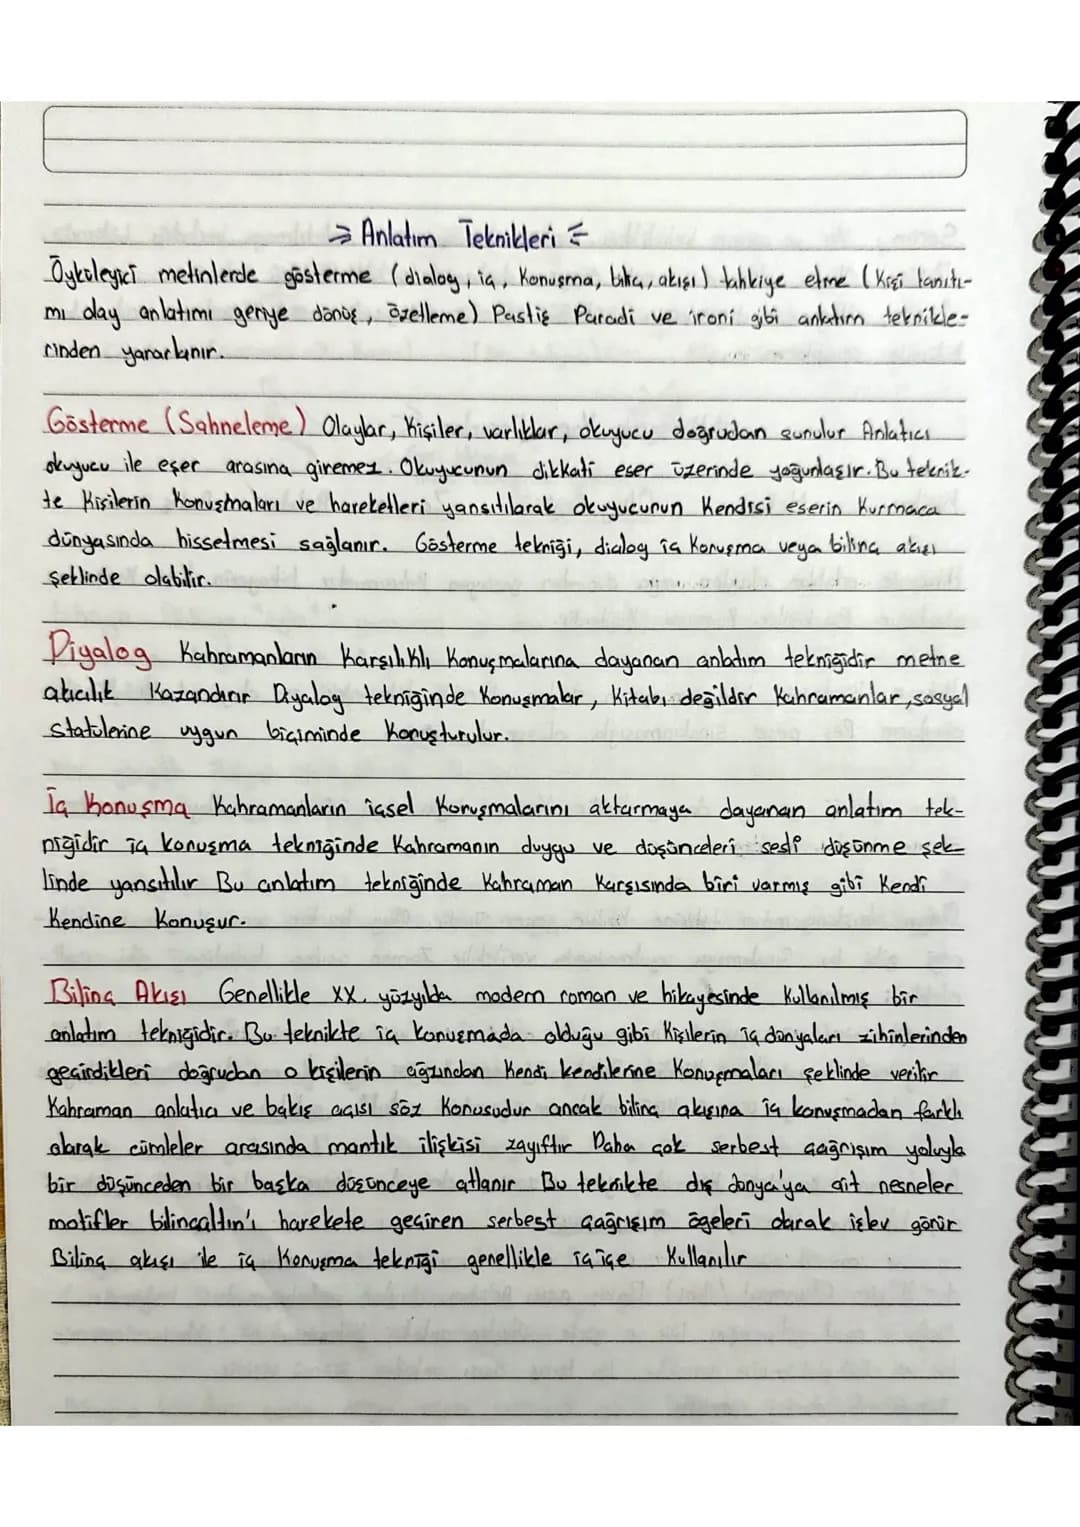 → Anlatım Teknikleri ←
Öyküleyici metinlerde gösterme (dialog, iç, Konuşma, bilinç, akışı) tahkiye etme (Kişi tanıtı-
mı olay anlatımı geriye dönüş, özetleme) Pastiş Paradi ve ironi gibi anlatım teknikle-
rinden yararlanır.
Gösterme (Sahneleme) Olaylar, Kişiler, varlıklar, okuyucu doğrudan sunulur Anlatıcı
okuyucu ile eser arasına giremez. Okuyucunun dikkati eser üzerinde yoğunlaşır. Bu teknik-
te Kişilerin Konuşmaları ve hareketleri yansıtılarak okuyucunun Kendisi eserin Kurmaca
dünyasında hissetmesi sağlanır. Gösterme tekniği, dialog iç Konuşma veya bilinç akışı
şeklinde olabilir.
Diyalog Kahramanların Karşılıklı Konuşmalarına dayanan anlatım tekniğidir metne
akıcılık Kazandırır Diyalog tekniğinde Konuşmalar, Kitabı değildir Kahramanlar, sosyal
statülerine uygun biçiminde Konuşturulur.
İç Konuşma Kahramanların içsel Konuşmalarını aktarmaya dayanan anlatım tek-
niğidir iç konuşma tekniğinde Kahramanın duygu ve düşünceleri sesli düşünme şek-
linde yansıtılır Bu anlatım tekniğinde Kahraman Karşısında biri varmış gibi Kendi
Kendine Konuşur.
Bilinç Akışı Genellikle XX. yüzyılda modern roman ve hikayesinde Kullanılmış bir
anlatım tekniğidir. Bu teknikte iç konuşmada olduğu gibi Kişilerin iç dünyaları zihinlerinden
geçirdikleri doğrudan o kişilerin ağzından Kendi kendilerine Konuşmaları şeklinde verilir
Kahraman anlatıcı ve bakış açısı söz Konusudur ancak bilinç akışına iç konuşmadan farklı
olarak cümleler arasında mantık ilişkisi zayıftır Daha çok serbest çağrışım yoluyla
bir düşünceden bir başka düşünceye atlanır Bu teknikte dış dünya'ya ait nesneler
motifler bilinçaltın'ı harekete geçiren serbest çağrışım ögeleri olarak işlev görür
Bilinç akışı ile iç Konuşma tekniği genellikle iç içe Kullanılır